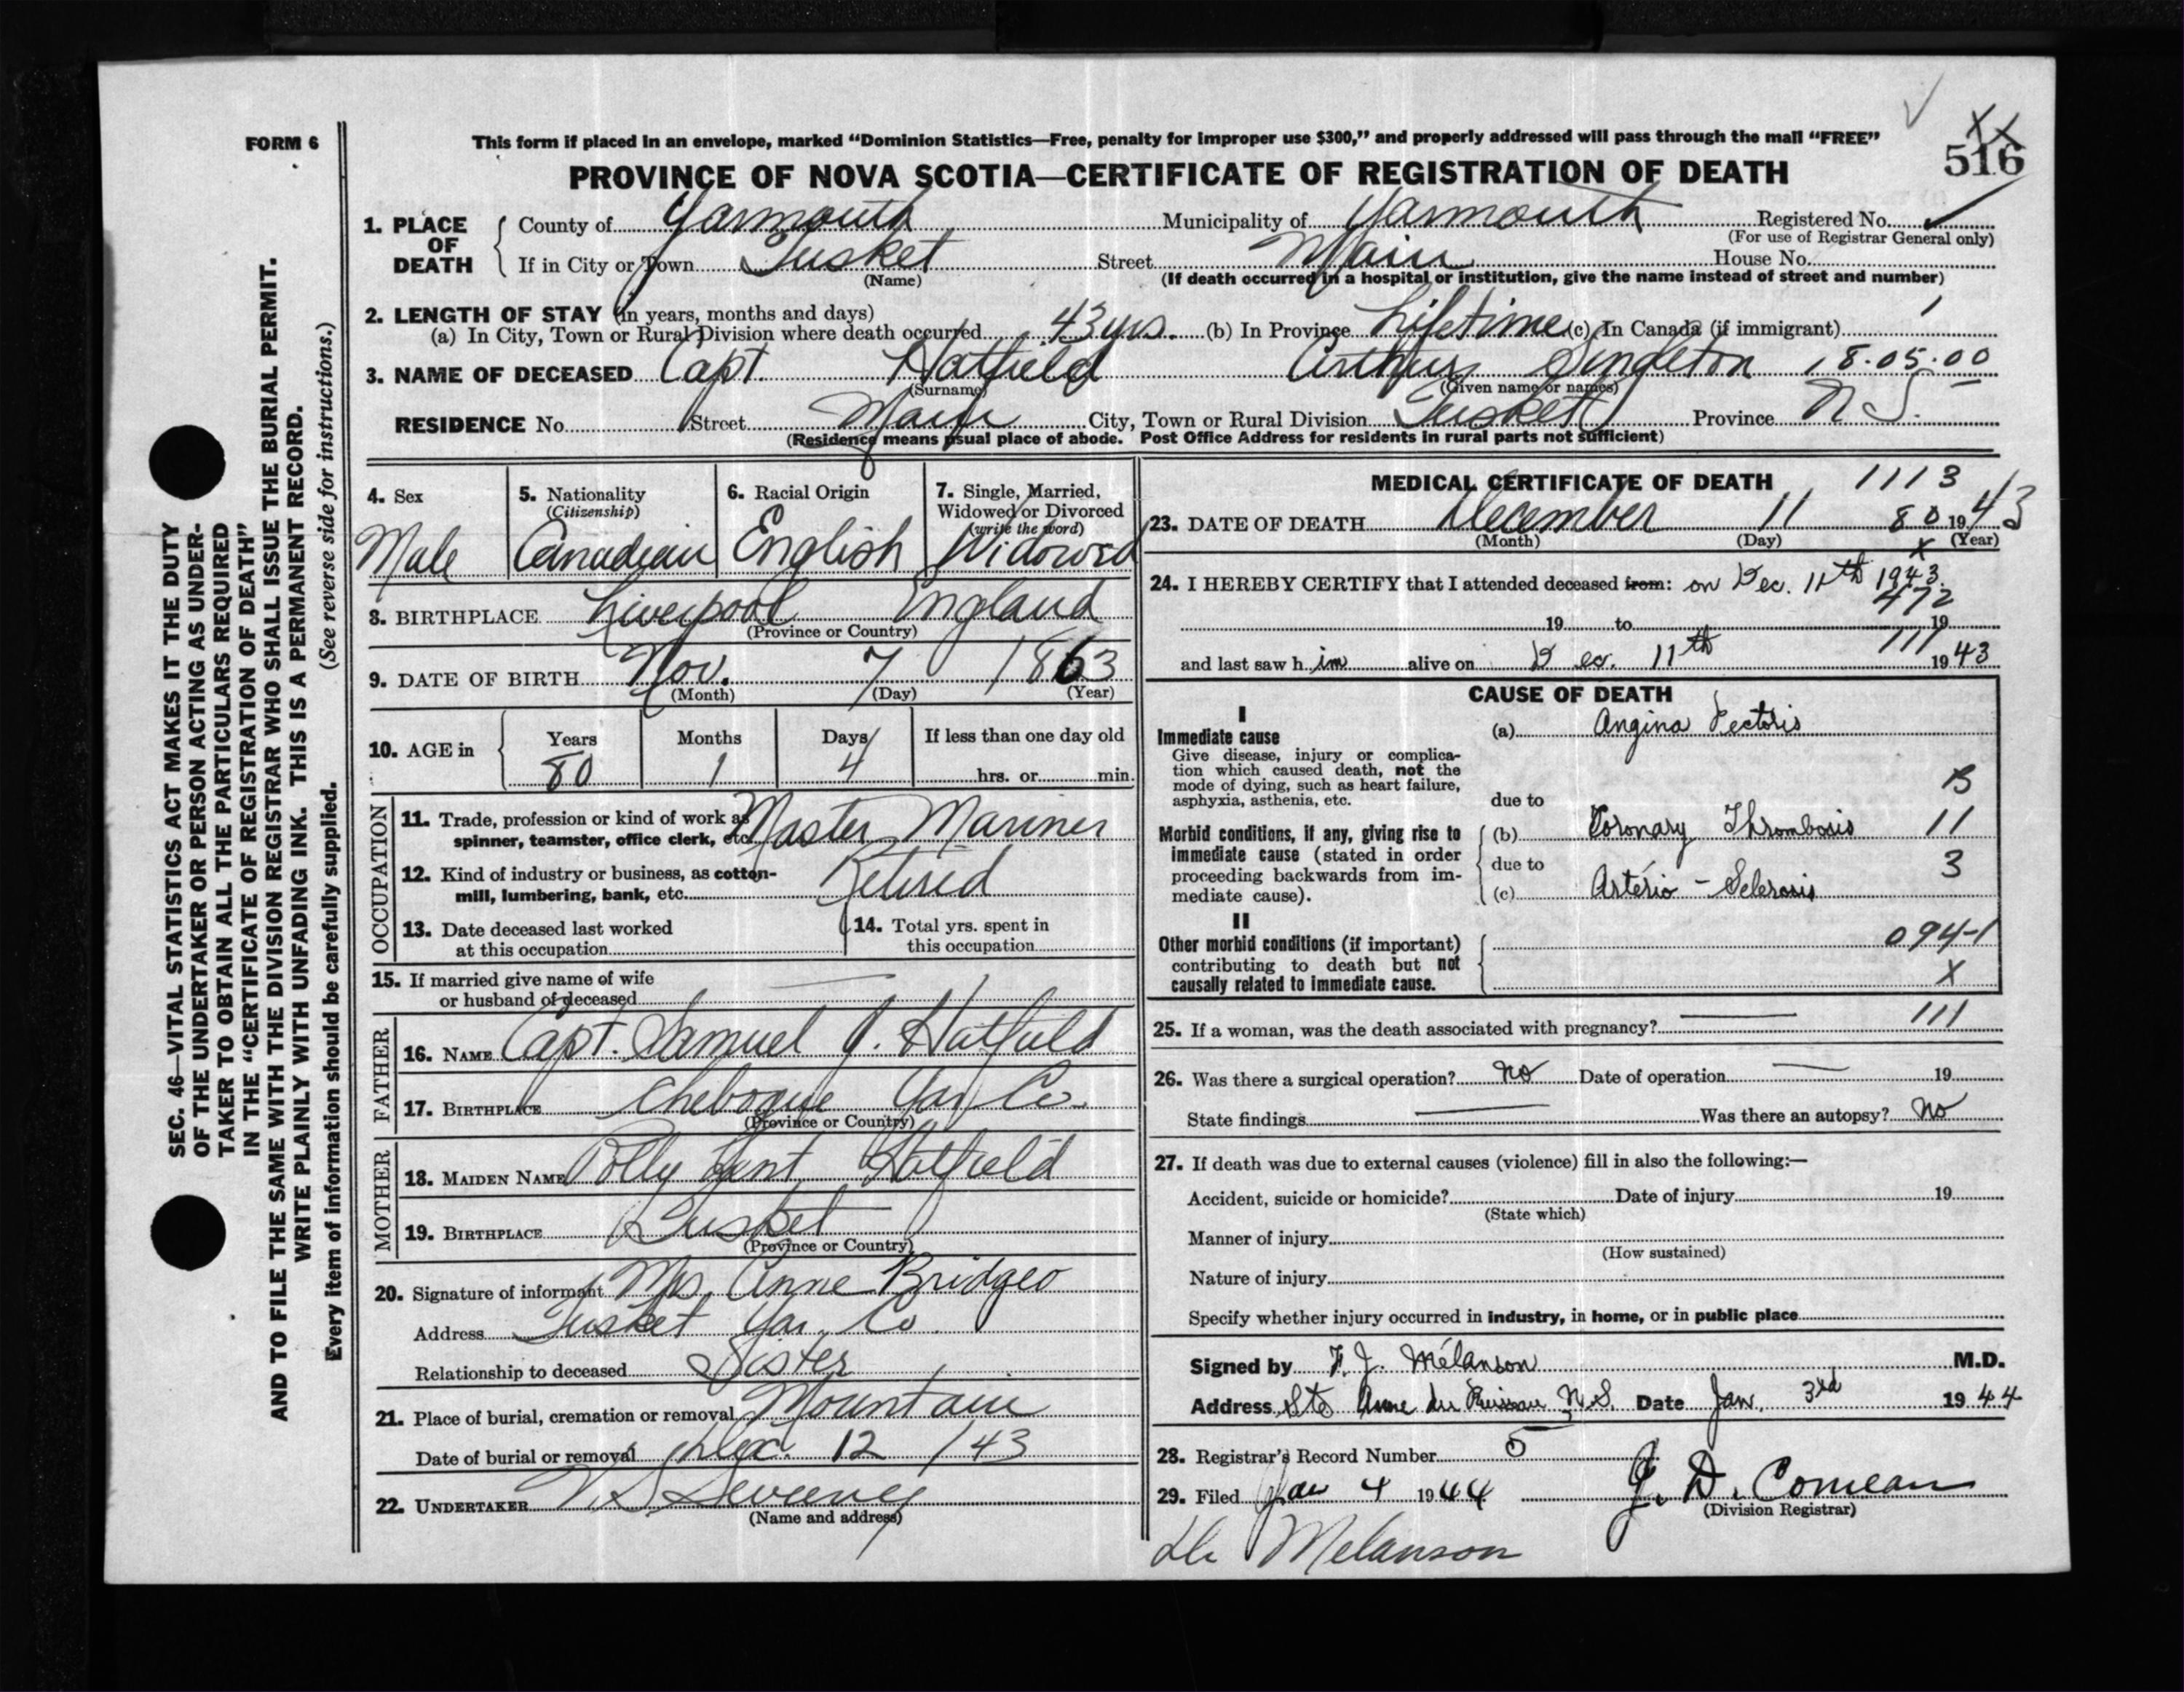 FORM 6
This form if placed in an envelope, marked “Dominion Statistics—Free, penalty for improper use $300,” and properly addressed will pass through the mail “FREE”
516
PROVINCE OF NOVA SCOTIA—CERTIFICATE OF REGISTRATION OF DEATH
1. PLACE OF DEATH
County of Yarmouth Municipality of Yarmouth Registered No.
(For use of Registrar General only)
If in City or Town Tusket Street Main House No.
(Name) (If death occurred in a hospital or institution, give the name instead of street and number)
2. LENGTH OF STAY (in years, months and days)
(a) In City, Town or Rural Division where death occurred 43 yrs. (b) In Province Lifetime (c) In Canada (if immigrant)
3. NAME OF DECEASED Capt. Hatfield Arthur Singleton 18.05.00
(Surname) (Given name or names)
RESIDENCE No. Street Main City, Town or Rural Division Tusket Province N S.
(Residence means usual place of abode. Post Office Address for residents in rural parts not sufficient)
4. Sex
Male
5. Nationality
(Citizenship)
Canadian
6. Racial Origin
English
7. Single, Married,
Widowed or Divorced
(write the word)
Widowed
8. BIRTHPLACE Liverpool England
(Province or Country)
9. DATE OF BIRTH Nov. 7 1863
(Month) (Day) (Year)
10. AGE in Years Months Days If less than one day old
80 1 4 hrs. or min.
OCCUPATION
11. Trade, profession or kind of work as Master Mariner
spinner, teamster, office clerk, etc.
12. Kind of industry or business, as cotton- Retired
mill, lumbering, bank, etc.
13. Date deceased last worked
at this occupation
14. Total yrs. spent in
this occupation
15. If married give name of wife
or husband of deceased
FATHER
16. NAME Capt. Samuel J. Hatfield
17. BIRTHPLACE Chebogue Yar Co.
(Province or Country)
MOTHER
18. MAIDEN NAME Polly Lent Hatfield
19. BIRTHPLACE Tusket
(Province or Country)
20. Signature of informant Mrs. Anne Bridgeo
Address Tusket Yar. Co
Relationship to deceased Sister
21. Place of burial, cremation or removal Mountain
Date of burial or removal Dec. 12 / 43
22. UNDERTAKER V S Sweeney
(Name and address)
MEDICAL CERTIFICATE OF DEATH 1113
23. DATE OF DEATH December 11 80 1943
(Month) (Day) (Year)
X
24. I HEREBY CERTIFY that I attended deceased from: on Dec. 11th 1943.
472
19 to 19
111
and last saw him alive on Dec. 11th 1943
CAUSE OF DEATH
I
Immediate cause
Give disease, injury or complica-
tion which caused death, not the
mode of dying, such as heart failure,
asphyxia, asthenia, etc.
(a) Angina Pectoris
B
due to
Morbid conditions, if any, giving rise to
immediate cause (stated in order
proceeding backwards from im-
mediate cause).
(b) Coronary Thrombosis 11
due to 3
(c) Arterio - Sclerosis
II
Other morbid conditions (if important)
contributing to death but not
causally related to immediate cause.
094-1
X
25. If a woman, was the death associated with pregnancy? 111
26. Was there a surgical operation? No Date of operation 19
State findings Was there an autopsy? No
27. If death was due to external causes (violence) fill in also the following:—
Accident, suicide or homicide? Date of injury 19
(State which)
Manner of injury
(How sustained)
Nature of injury
Specify whether injury occurred in industry, in home, or in public place
Signed by F. J. Mélanson M.D.
Address Ste Anne du Ruisseau N.S. Date Jan. 3rd 1944
28. Registrar's Record Number 5
29. Filed Jan 4 1944 J. D. Comeau
(Division Registrar)
Dr Melanson
SEC. 46—VITAL STATISTICS ACT MAKES IT THE DUTY
OF THE UNDERTAKER OR PERSON ACTING AS UNDER-
TAKER TO OBTAIN ALL THE PARTICULARS REQUIRED
IN THE “CERTIFICATE OF REGISTRATION OF DEATH”
AND TO FILE THE SAME WITH THE DIVISION REGISTRAR WHO SHALL ISSUE THE BURIAL PERMIT.
WRITE PLAINLY WITH UNFADING INK. THIS IS A PERMANENT RECORD.
Every item of information should be carefully supplied. (See reverse side for instructions.)